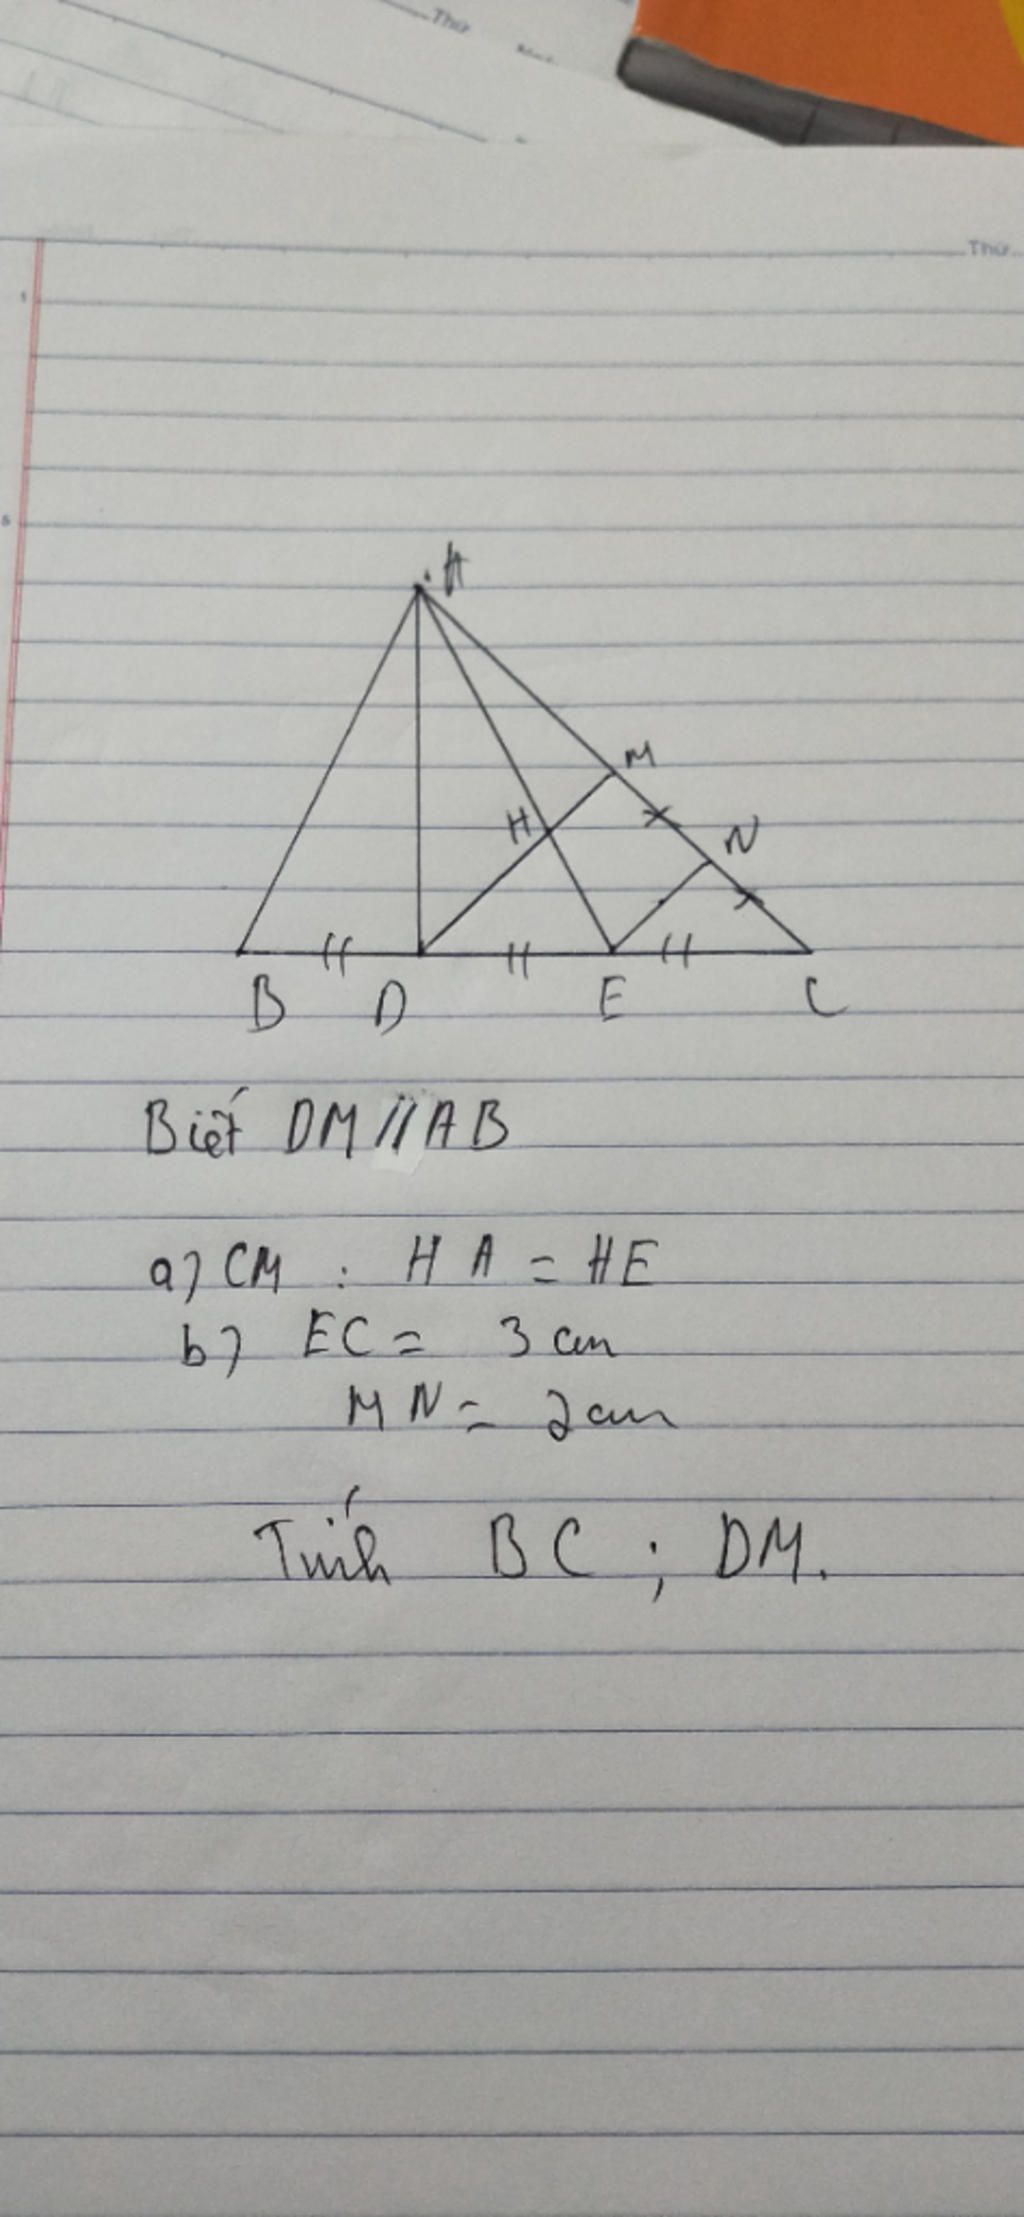 Thứ
Thứ...
1
5
A
M
H
N
B D E C
Biết DM // AB
a) CM : HA = HE
b) EC = 3 cm
MN = 2 cm
Tính BC ; DM.